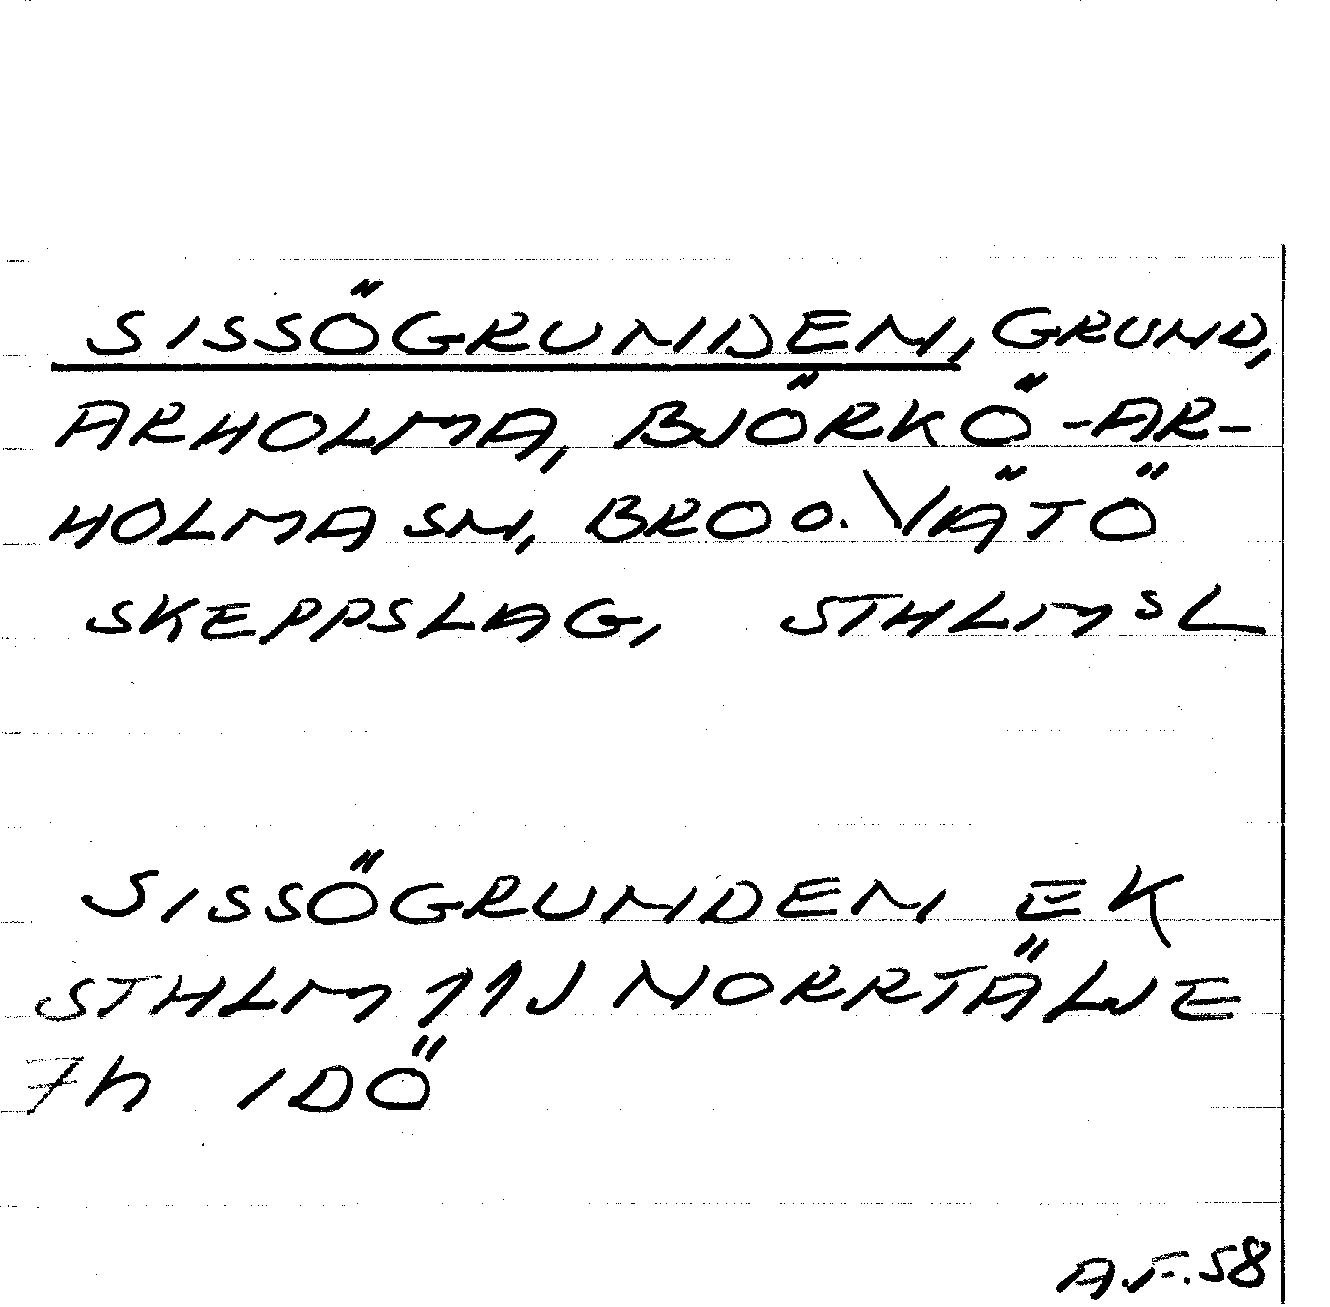 SISSÖGRUNDEN, GRUND,
ARHOLMA, BJÖRKÖ-AR-
HOLMA SN, BRO O. VÄTÖ
SKEPPSLAG, STHLMSL
SISSÖGRUNDEN EK
STHLM 11J NORRTÄLJE
7h IDÖ
A.F. 58